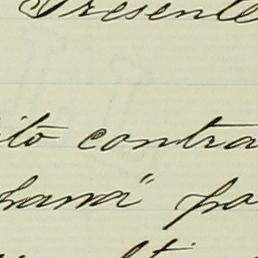 Presente
ito contra
hana" po